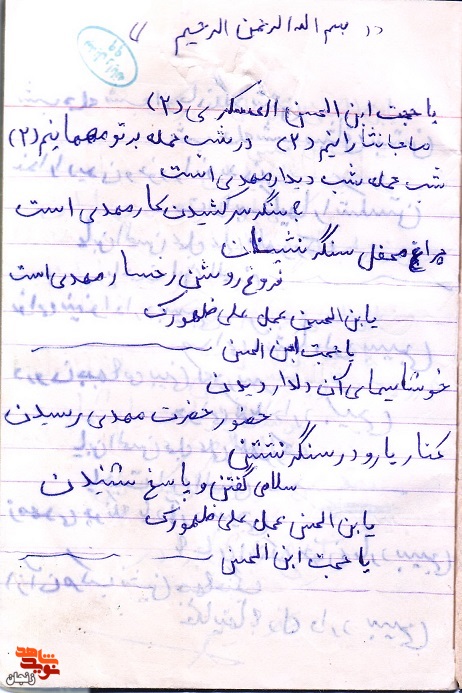 (( بسم الله الرحمن الرحیم ))
یا حجت ابن الحسن العسکری (۲)
ما جانثارانیم (۲) در شب حمله بر تو مهمانیم (۲)
شب حمله شب دیدار مهدی است
به سنگر سر کشیدن کار مهدی است
چراغ محفل سنگر نشینان
فروغ روشن رخسار مهدی است
یابن الحسن عجل علی ظهورک
یا حجت ابن الحسن
خوشا سیمای آن دلدار دیدن
حضور حضرت مهدی رسیدن
کنار یار و در سنگر نشتن
سلامی گفتن و پاسخ شنیدن
یابن الحسن عجل علی ظهورک
یا حجت ابن الحسن
نوید شاهد
زنجان